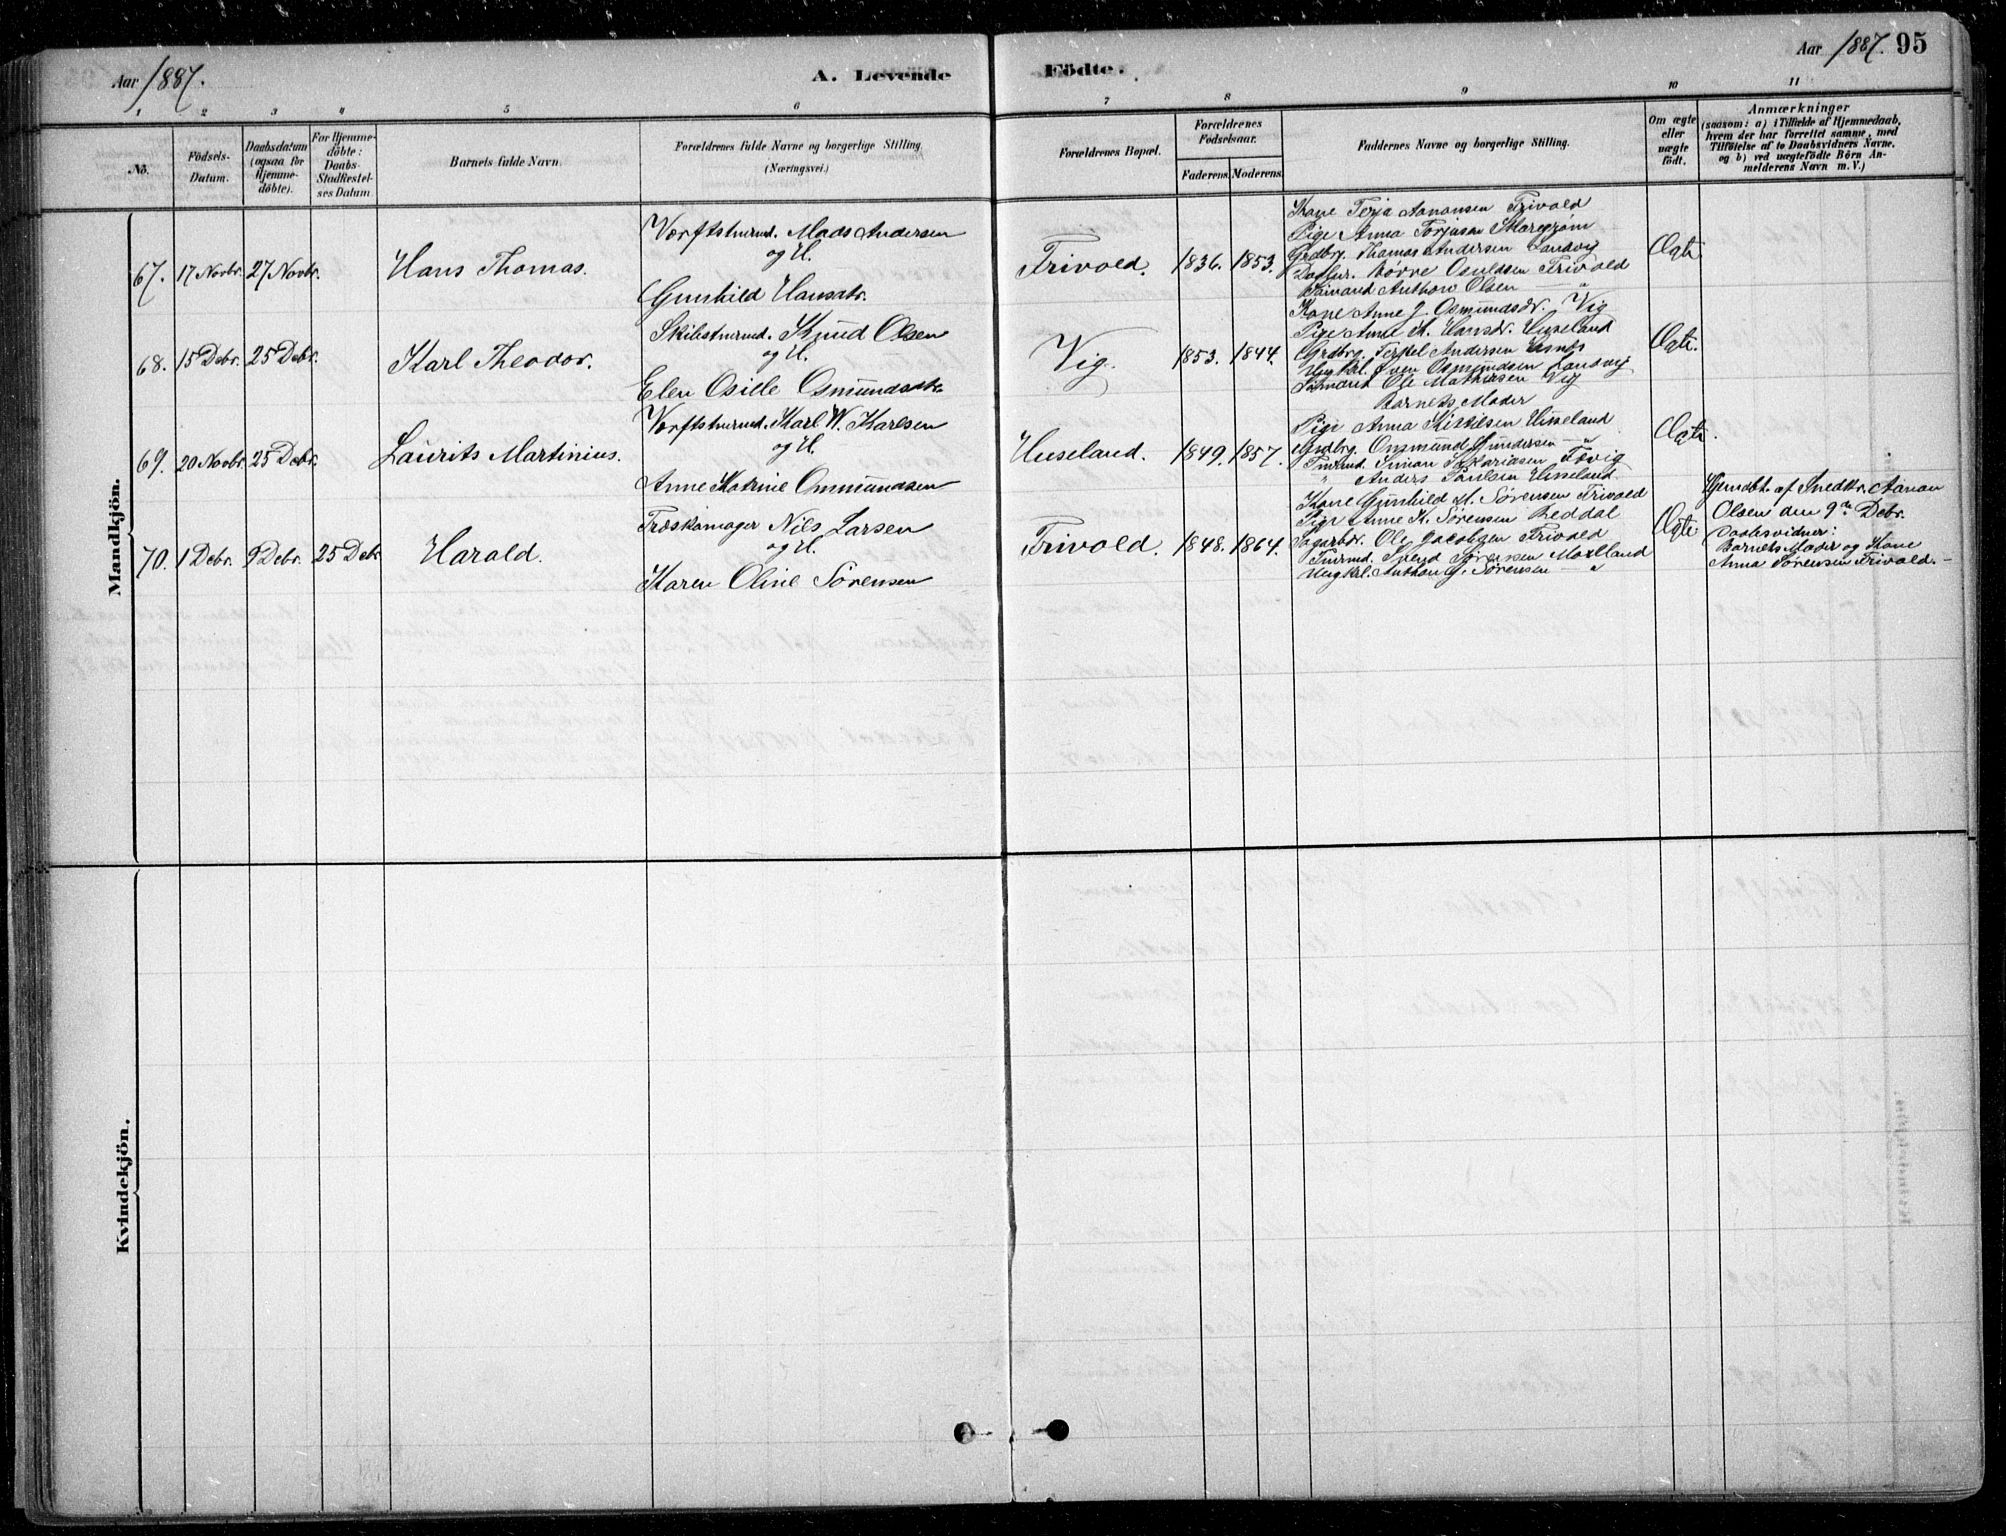 Aar 1887.
A. Levende
Födte.
Aar 1887. 95
1 2 3 4 5 6 7 8 9 10 11
No.
Födsels-Datum.
Daabsdatum (ogsaa for Hjemme-döbte).
For Hjemme-döbte: Daabs-Stadfæstel-ses Datum
Barnets fulde Navn.
Forældrenes fulde Navne og borgerlige Stilling (Næringsvei.)
Forældrenes Bopæl.
Forældrenes Födselsaar.
Faderens. Moderens.
Faddernes Navne og borgerlige Stilling.
Om ægte eller uægte födt.
Anmærkninger
(saasom: a) i Tilfælde af Hjemmedaab,
hvem der har forrettet samme, med
Tilföielse af to Daabsvidners Navne,
og b) ved uægtefödte Börn An-
melderens Navn m. V.)
Mandkjön.
67. 17 Novbr. 27 Novbr. Hans Thomas.
Værftstmd. Mads Andersen
og H.
Gunhild Hansdtr.
Frivold. 1836. 1853.
Kone Terja Aanonsen Frivold
Pige Anna Torjusen
Grdbrg. Thomas Andersen Landvig
Børre Osuldsen Frivold
Sømand Anthon Olsen — "
Ægte
68. 15 Debr. 25 Debr. Karl Theodor.
Knud Olsen
og H.
Elen Osille Osmundsdtr.
Vig. 1853. 1844.
Kone Anne J. Osmundsdr. Vig
Pige Anne M. Hansdr. Huseland
Grdbrg. Terkel Andersen
Ungkrl. Sven Osmundsen Landvig
Sømand Ole Mathiesen Vig
Ægte.
69. 20 Novbr. 25 Debr. Laurits Martinius.
Værftstmd. Karl W. Karlsen
og H.
Anne Katrine Ommundsen
Huseland. 1849. 1857.
Barnets Moder
Pige Anna Huseland
Grdbrg. Ommund Gundersen — "
Simon Fævig
" Anders Paulsen Huseland
Ægte.
70. 1 Debr. 9 Debr. 25 Debr. Harald.
Træskomager Nils Larsen
og H.
Karen Oline Sörensen
Frivold. 1848. 1864.
Kone Gunhild M. Sörensen Frivold
Pige Anne K. Sörensen Reddal
Sagarbdr. Ole Jacobsen Frivold
Sörensen
Ungkrl. Anthon G. Sörensen — "
Ægte
Hjemdbt. af Snedkr. Aanon
Olsen den 9de Debr.
Daabsvidner:
Barnets Moder og Kone
Anna Sörensen Frivold.
Kvindekjön.